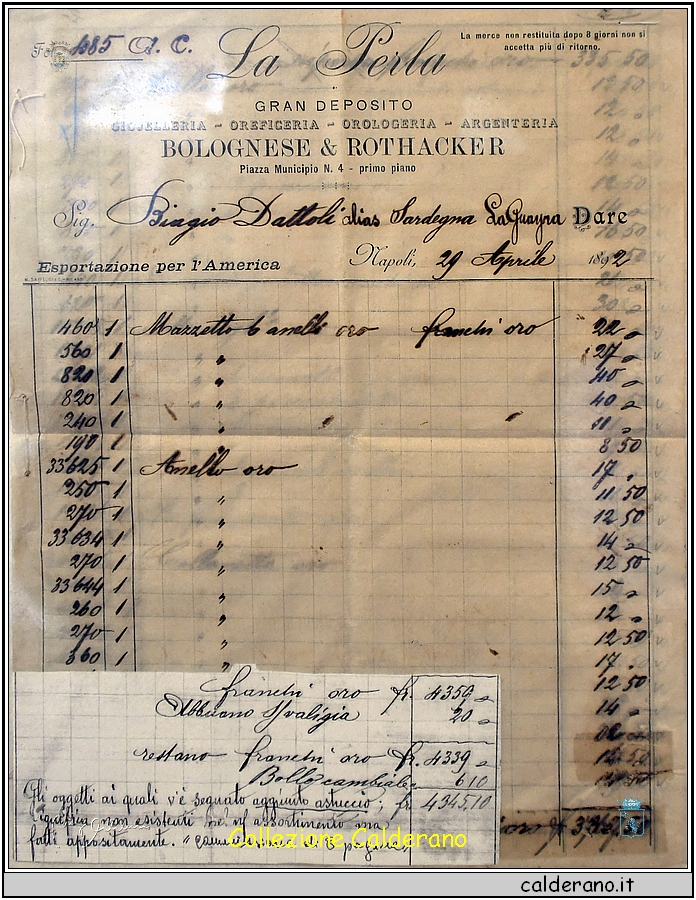 485 A. C.
La merce non restituita dopo 8 giorni non si
accetta più di ritorno.
La Perla
GRAN DEPOSITO
GIOJELLERIA - OREFICERIA - OROLOGERIA - ARGENTERIA
BOLOGNESE & ROTHACKER
Piazza Municipio N. 4 - primo piano
Sig. Biagio Dattoli alias Sardegna LaGuayra Dare
Esportazione per l'America Napoli, 29 Aprile 1892
460 1 Mazzetto 6 anelli oro franchi oro 22 "
560 1 " 27 "
820 1 " 40 "
820 1 " 40 "
240 1 " 11 "
190 1 " 8 50
33625 1 Anello oro 17 "
250 1 " 11 50
270 1 " 12 50
33634 1 " 14 "
270 1 " 12 50
33644 1 " 15 "
260 1 " 12 "
270 1 " 12 50
360 1 " 17 "
12 50
14 "
franchi oro fr. 4359 "
Abbuono S/valigia 20 "
restano franchi oro fr. 4339 "
Bollo cambiale 6 10
Gli oggetti ai quali v'è segnato aggiunto astuccio; fr 4345,10
non esistenti nel assortimento ma
fatti appositamente. "
Collezione Calderano
calderano.it